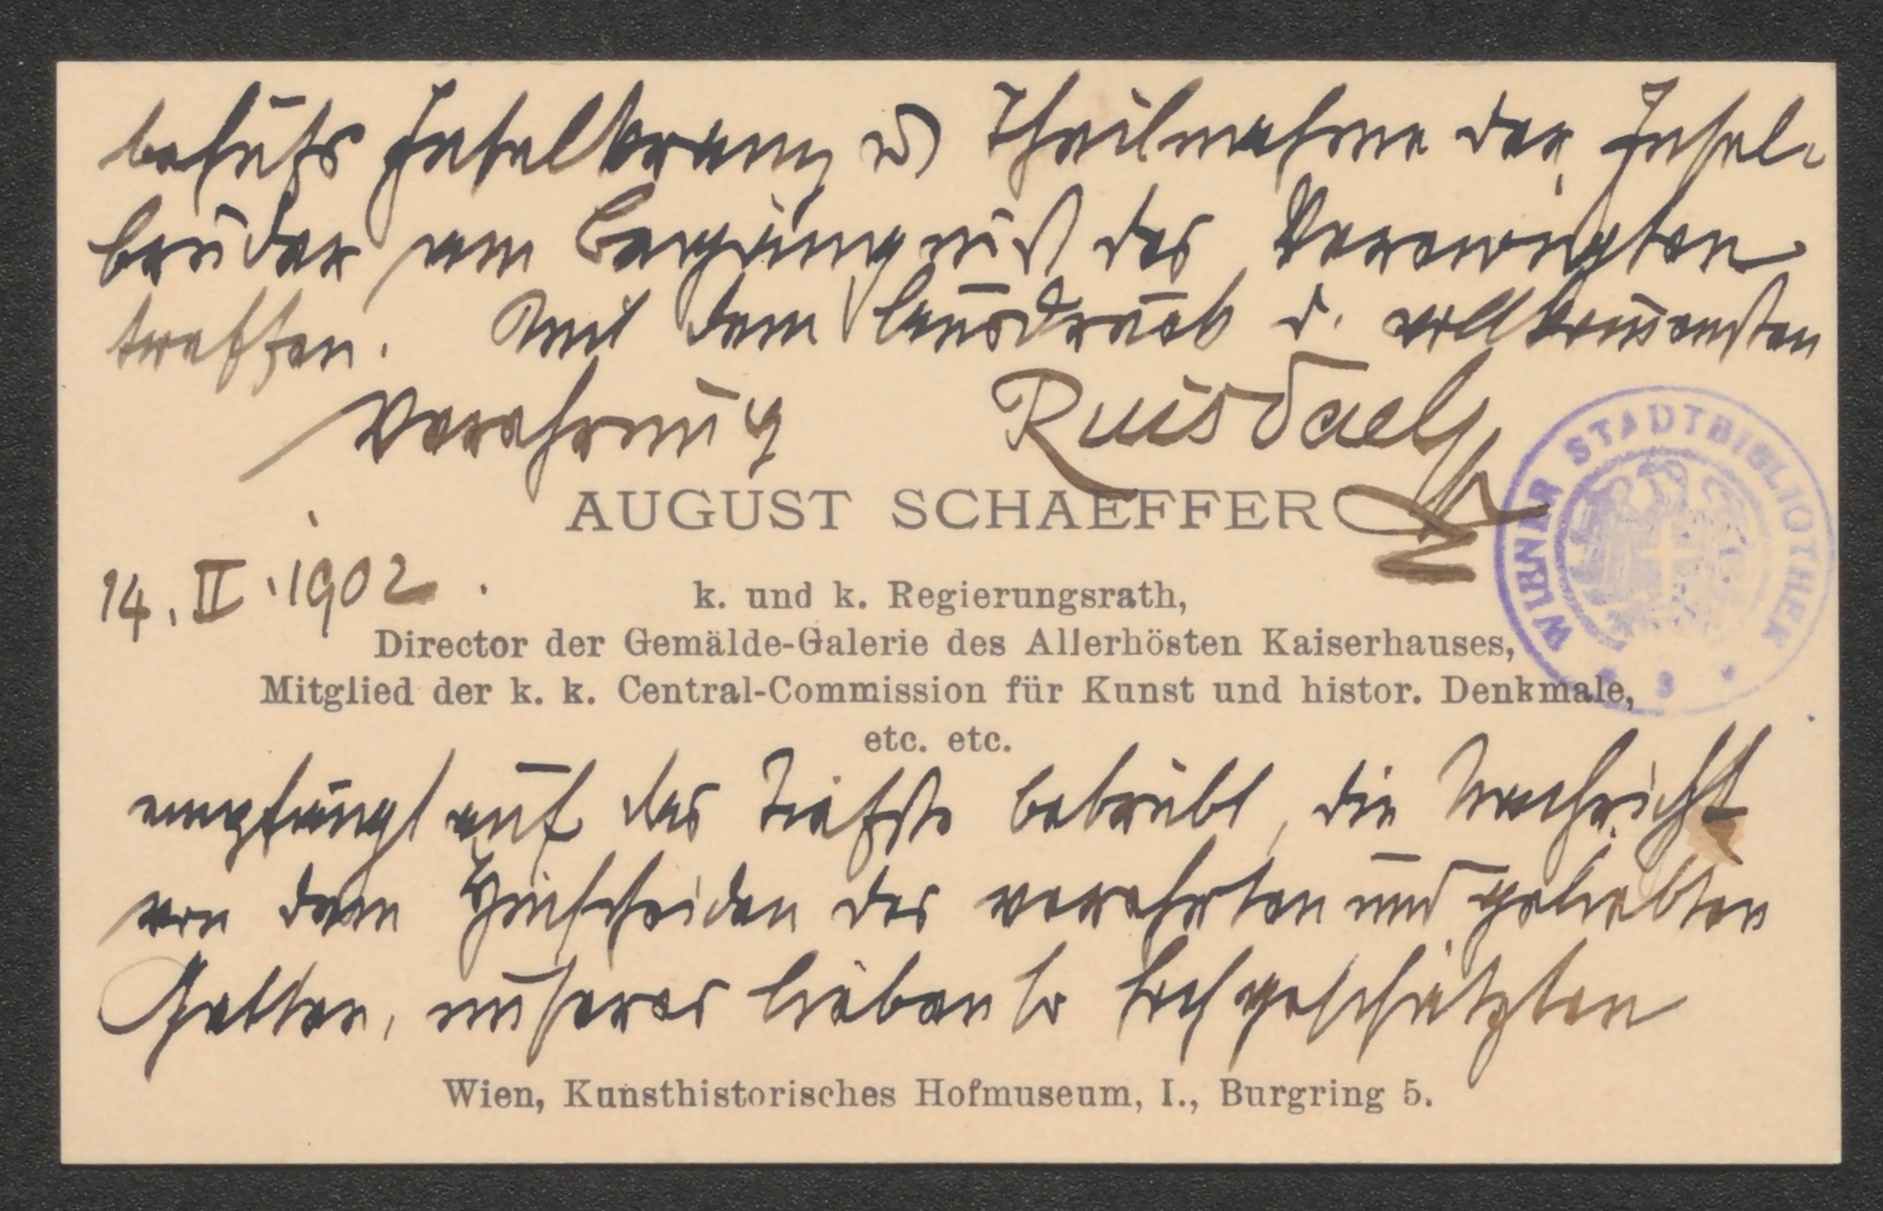 behufs Inselkranz u Theilnahme der Insel-
brüder am Begängniß des Verewigten
treffen. Mit dem Ausdruck d. vollkommensten
Verehrung Ruisdael
AUGUST SCHAEFFER
14. II. 1902.
k. und k. Regierungsrath,
Director der Gemälde-Galerie des Allerhösten Kaiserhauses,
Mitglied der k. k. Central-Commission für Kunst und histor. Denkmale,
etc. etc.
WIENER STADTBIBLIOTHEK
empfängt auf das Tiefste betrübt, die Nachricht
von dem Hinscheiden des verehrten und geliebten
Gatten, unseres lieben so hochgeschätzten
Wien, Kunsthistorisches Hofmuseum, I., Burgring 5.